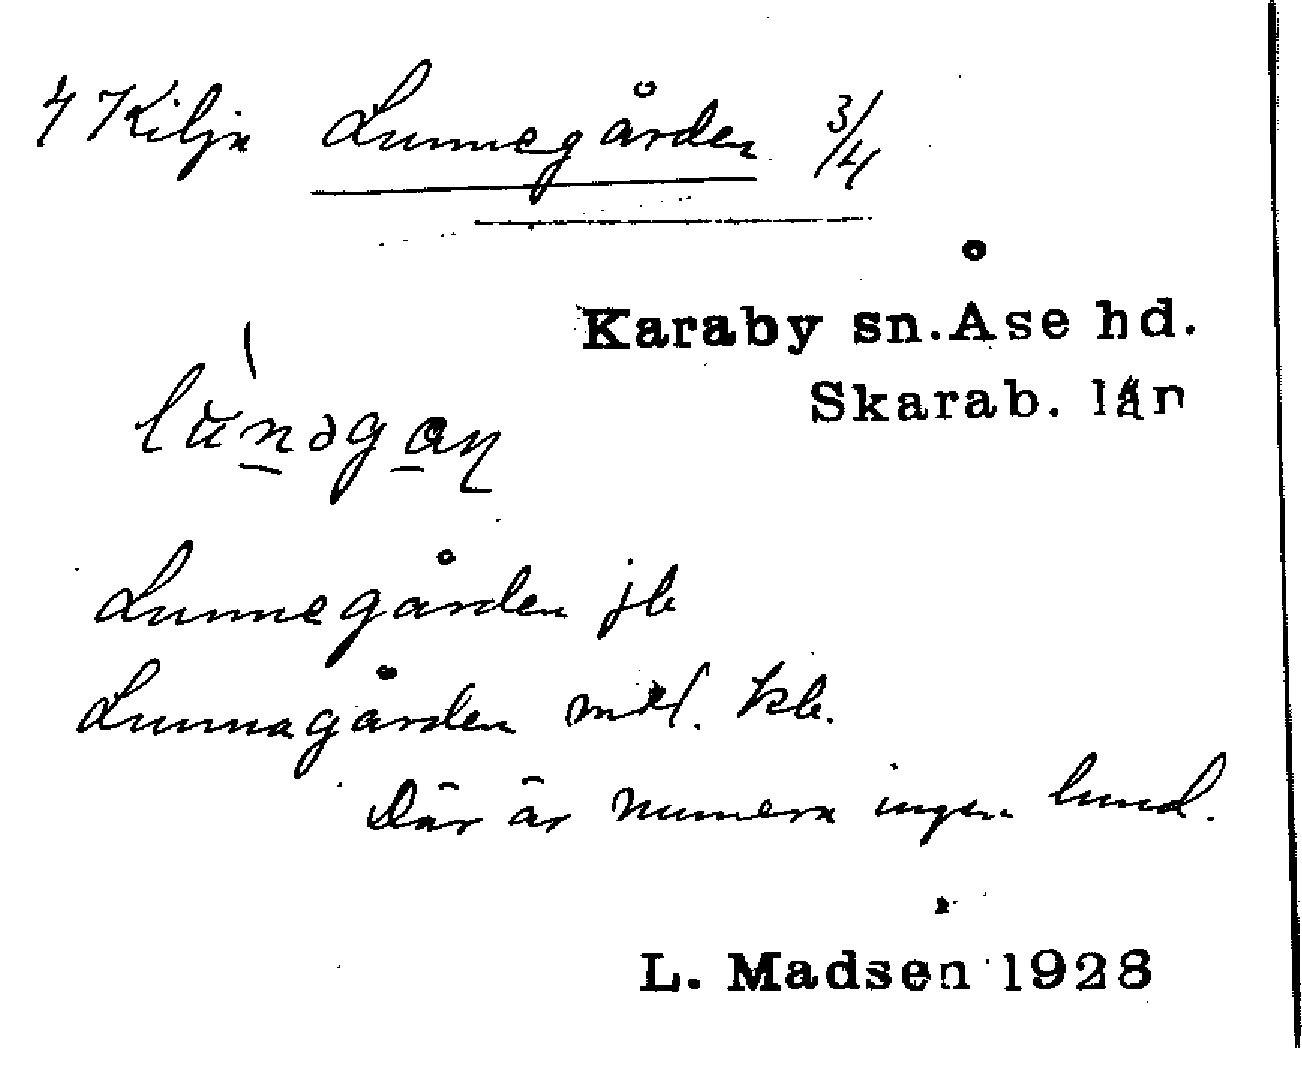 4 Kilja Lunnegården 3/4
Karaby sn. Åse hd.
Skarab. län
Lunnegården jb
Lunnagården mtl. kb.
Där är numera ingen lund.
L. Madsen 1928